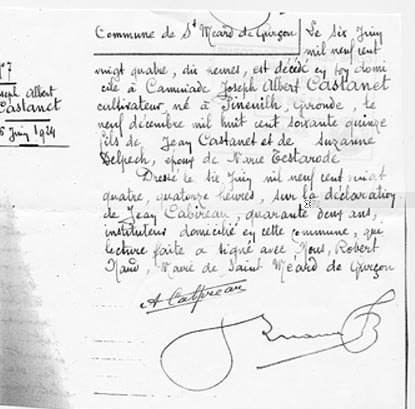 Commune de St Méard de Gurçon
N° 7
Joseph Albert
Castanet
6 Juin 1924
Le six Juin
mil neuf cent
vingt quatre, dix heures, est décédé en son domi
cile à Camuiade Joseph Albert Castanet
cultivateur né à Pineuilh, Gironde, le
neuf décembre mil huit cent soixante quinze
fils de Jean Castanet et de Suzanne
Delpech, époux de Marie Testarode
Dressé le six Juin mil neuf cent vingt
quatre, quatorze heures, sur la déclaration
de Jean Cabireau, quarante deux ans,
instituteur domicilié en cette commune, qui
lecture faite a signé avec Nous, Robert
Naud, Maire de Saint Méard de Gurçon